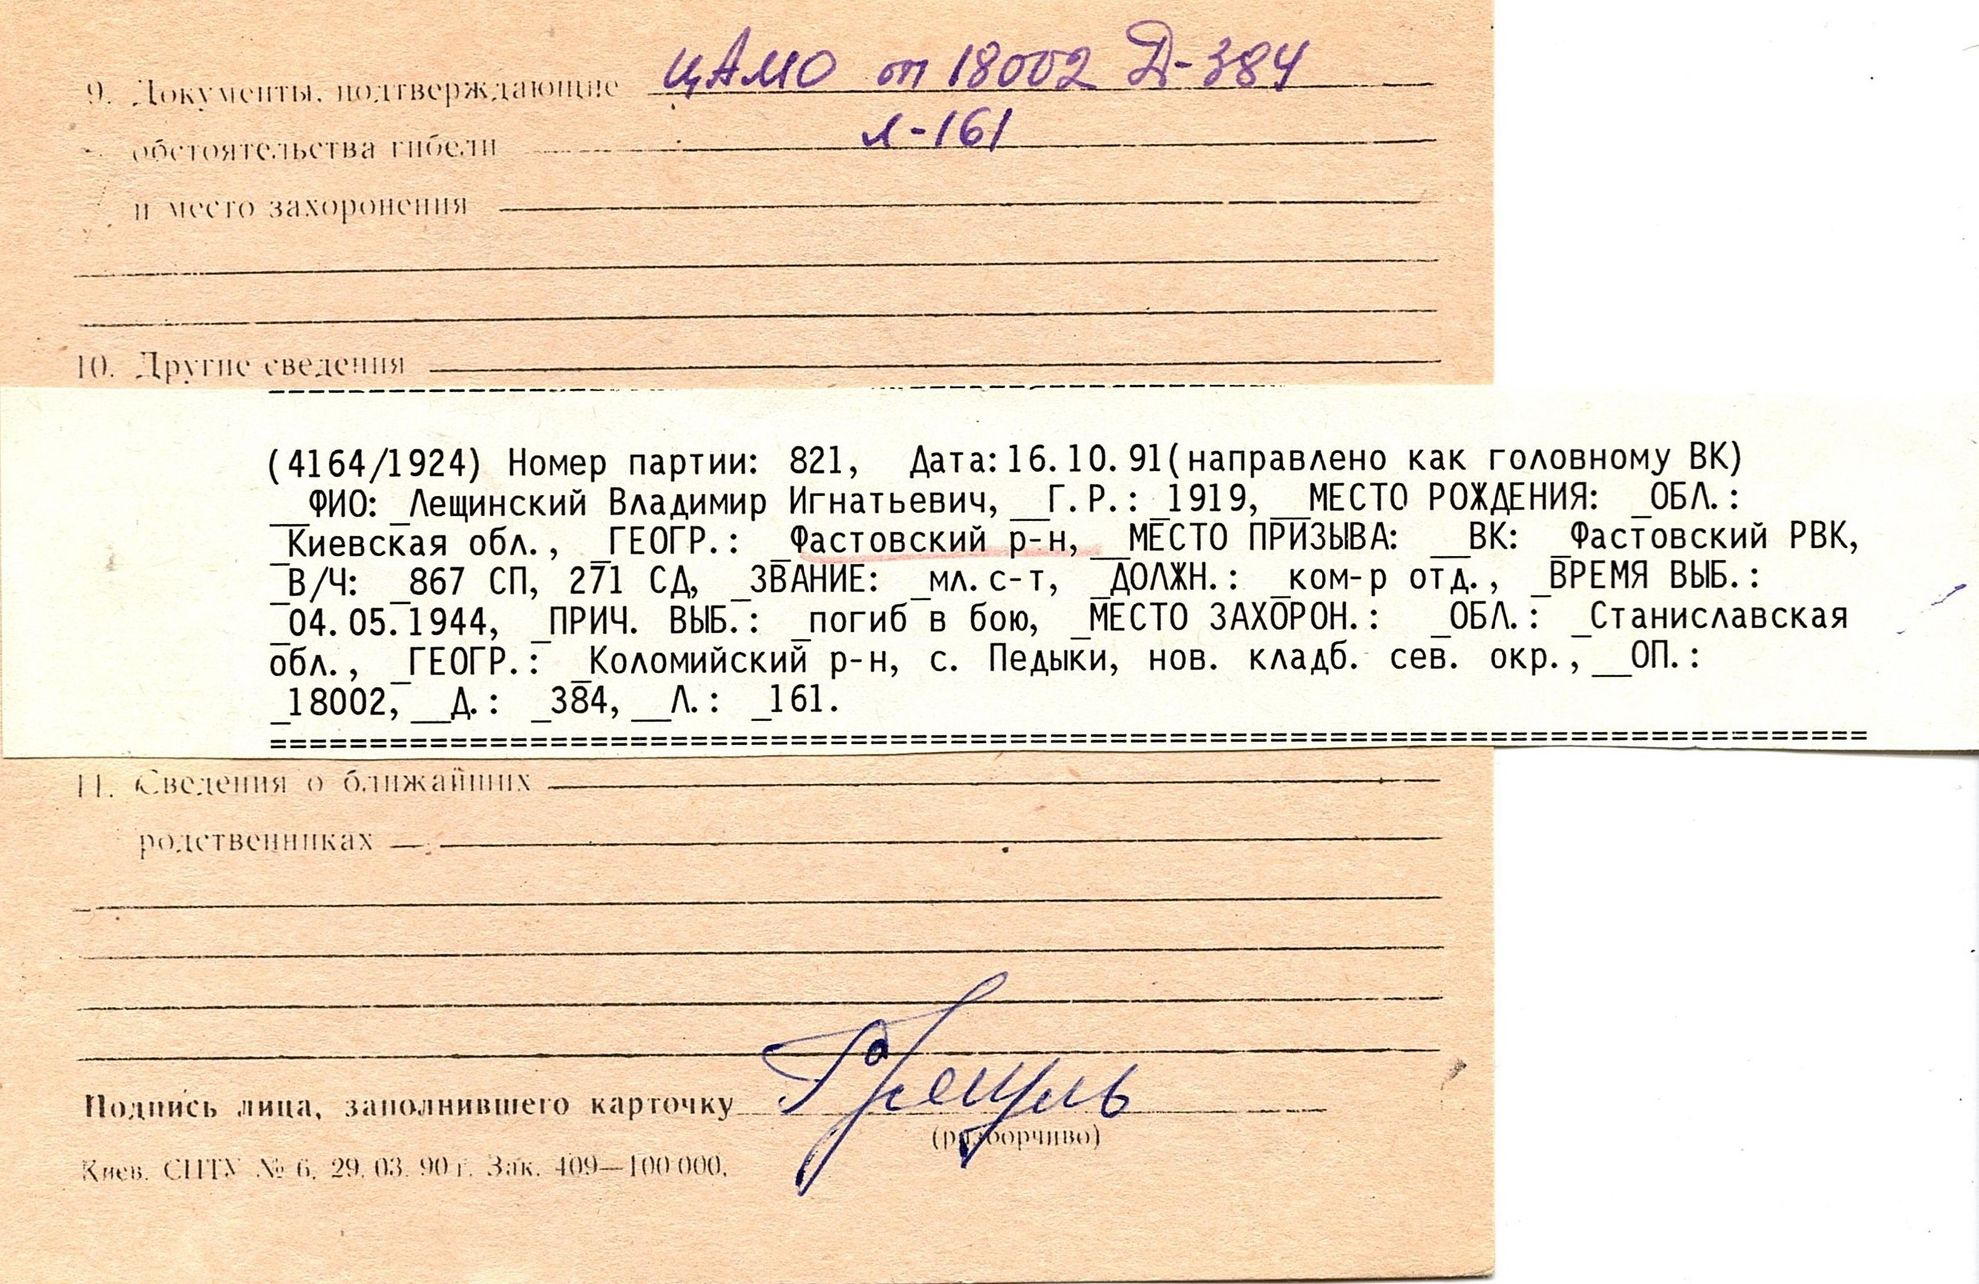 9. Документы, подтверждающие ЦАМО оп 18002 Д-384
обстоятельства гибели л-161
и место захоронения
10. Другие сведения
(4164/1924) Номер партии: 821, Дата:16.10.91(направлено как головному ВК)
__ФИО: _Лещинский Владимир Игнатьевич, __Г.Р.: _1919, __МЕСТО РОЖДЕНИЯ: _ОБЛ.:
_Киевская обл., _ГЕОГР.: _Фастовский р-н, __МЕСТО ПРИЗЫВА: __ВК: _Фастовский РВК,
_В/Ч: _867 СП, 271 СД, _ЗВАНИЕ: _мл.с-т, _ДОЛЖН.: _ком-р отд., _ВРЕМЯ ВЫБ.:
_04.05.1944, _ПРИЧ. ВЫБ.: _погиб в бою, _МЕСТО ЗАХОРОН.: _ОБЛ.: _Станиславская
обл., _ГЕОГР.: _Коломийский р-н, с. Педыки, нов. кладб. сев. окр., __ОП.:
_18002, __Д.: _384, __Л.: _161.
11. Сведения о ближайших
родственниках
Подпись лица, заполнившего карточку
(разборчиво)
Киев. СПТУ № 6, 29. 03. 90 г. Зак. 409—100 000.